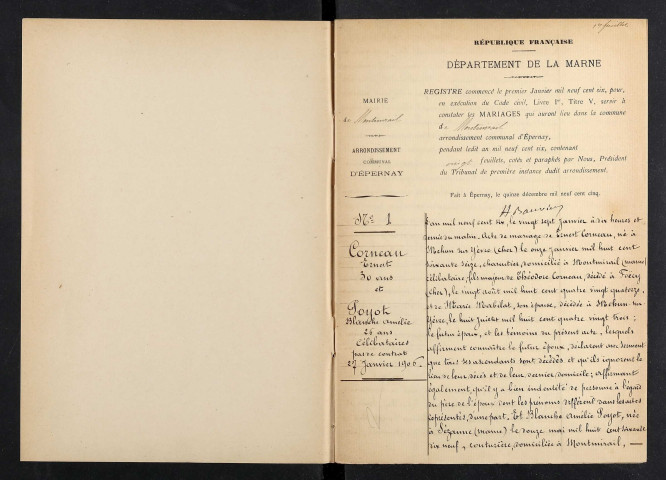 1er feuillet
RÉPUBLIQUE FRANÇAISE
DÉPARTEMENT DE LA MARNE
MAIRIE
de Montmirail
ARRONDISSEMENT
COMMUNAL
D'ÉPERNAY
REGISTRE commencé le premier Janvier mil neuf cent six, pour,
en exécution du Code civil, Livre Ier, Titre V, servir à
constater les MARIAGES qui auront lieu dans la commune
de Montmirail
arrondissement communal d'Épernay,
pendant ledit an mil neuf cent six, contenant
vingt feuillets, cotés et paraphés par Nous, Président
du Tribunal de première instance dudit arrondissement.
Fait à Épernay, le quinze décembre mil neuf cent cinq.
No 1
Corneau
Ernest
30 ans
et
Poyot
Blanche Amélie
26 ans
Célibataires
pas de contrat
27 Janvier 1906
L'an mil neuf cent six, le vingt sept Janvier à dix heures et
demie du matin. Acte de mariage de Ernest Corneau, né à
Mehun sur Yèvre (Cher) le onze Janvier mil huit cent
soixante seize, charretier, domicilié à Montmirail (Marne)
célibataire, fils majeur de Théodore Corneau, décédé à Foëcy
(Cher), le vingt août mil huit cent quatre vingt quatorze,
et de Marie Rabilat, son épouse, décédée à Mehun sur
Yèvre, le huit Juillet mil huit cent quatre vingt trois;
le futur époux, et les témoins du présent acte, lesquels
affirment connaître le futur époux, déclarant sous serment
que tous ses ascendants sont décédés et qu'ils ignorent le
lieu de leur décès et de leur dernier domicile; affirmant
également, qu'il y a bien indentité de personne à l'égard
du père de l'époux dont les prénoms diffèrent dans les actes
représentés, d'une part. Et Blanche Amélie Poyot, née
à Sézanne (Marne) le douze mai mil huit cent soixante
dix neuf, couturière, domiciliée à Montmirail,